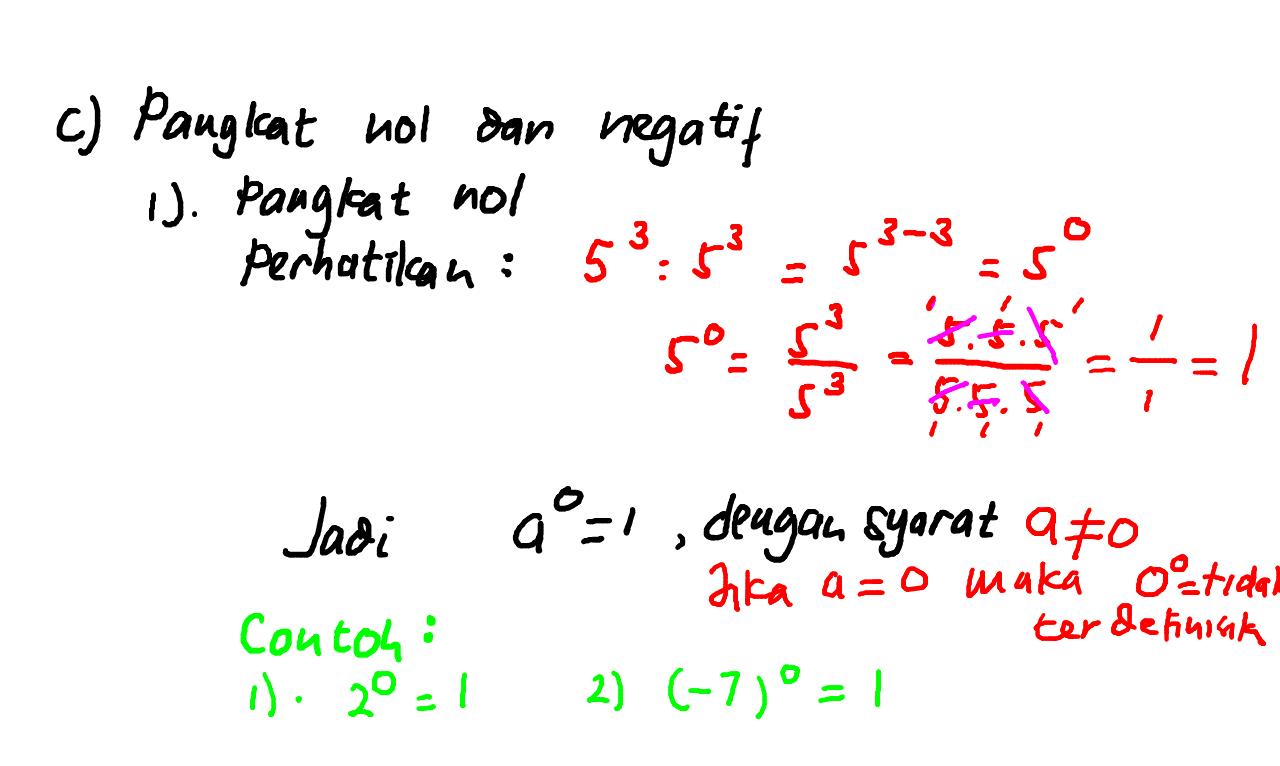 c) Pangkat nol dan negatif
1). Pangkat nol
Perhatikan : 5³ : 5³ = 5³⁻³ = 5⁰
5⁰ = 5³/5³ = 5.5.5/5.5.5 = 1/1 = 1
Jadi a⁰ = 1 , dengan syarat a ≠ 0
Jika a = 0 maka 0⁰ = tidak
terdefinisik
Contoh :
1). 2⁰ = 1 2) (-7)⁰ = 1